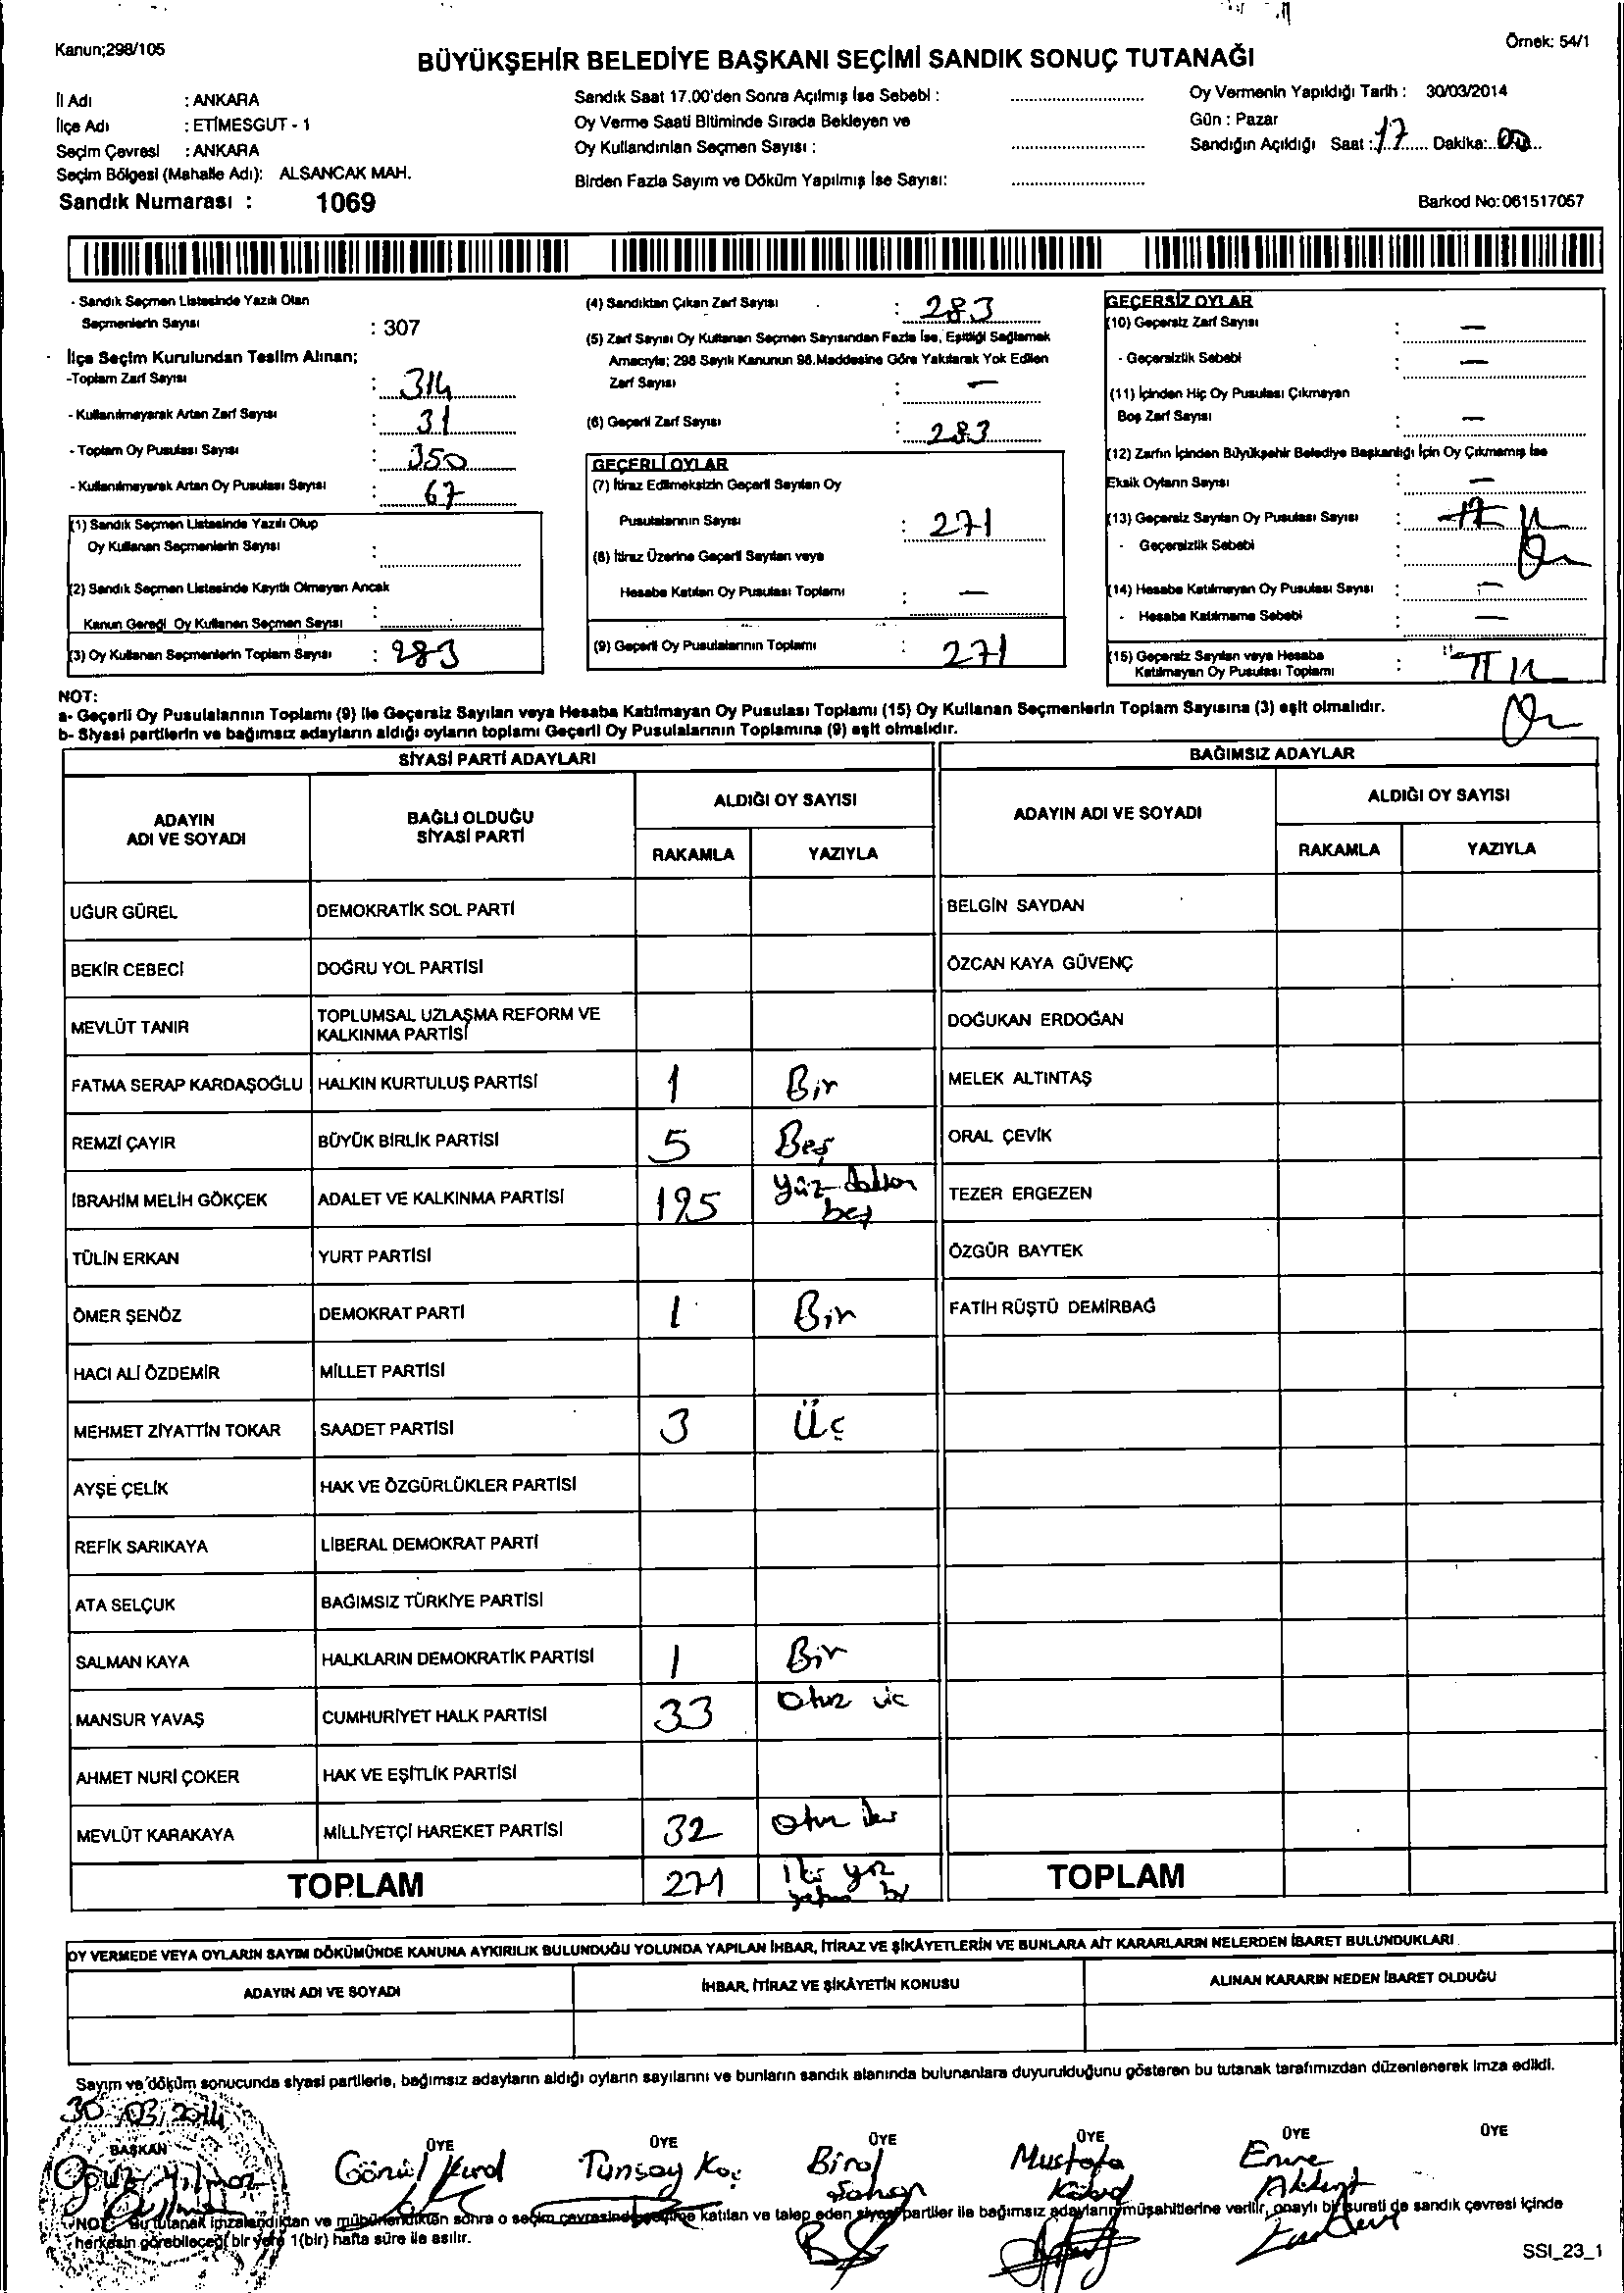 Kanun;298/105
Örnek: 54/1
BÜYÜKŞEHİR BELEDİYE BAŞKANI SEÇİMİ SANDIK SONUÇ TUTANAĞI
İl Adı : ANKARA
İlçe Adı : ETİMESGUT - 1
Seçim Çevresi : ANKARA
Seçim Bölgesi (Mahalle Adı): ALSANCAK MAH.
Sandık Numarası : 1069
Sandık Saat 17.00'den Sonra Açılmış İse Sebebi :
Oy Verme Saati Bitiminde Sırada Bekleyen ve
Oy Kullandırılan Seçmen Sayısı :
Birden Fazla Sayım ve Döküm Yapılmış İse Sayısı:
Oy Vermenin Yapıldığı Tarih : 30/03/2014
Gün : Pazar
Sandığın Açıldığı Saat : 17 Dakika: 00
Barkod No:061517057
- Sandık Seçmen Listesinde Yazılı Olan
Seçmenlerin Sayısı : 307
İlçe Seçim Kurulundan Teslim Alınan;
-Toplam Zarf Sayısı : 314
- Kullanılmayarak Artan Zarf Sayısı : 31
- Toplam Oy Pusulası Sayısı : 350
- Kullanılmayarak Artan Oy Pusulası Sayısı : 67
(1) Sandık Seçmen Listesinde Yazılı Olup
Oy Kullanan Seçmenlerin Sayısı :
(2) Sandık Seçmen Listesinde Kayıtlı Olmayan Ancak
Kanun Gereği Oy Kullanan Seçmen Sayısı :
(3) Oy Kullanan Seçmenlerin Toplam Sayısı : 283
(4) Sandıktan Çıkan Zarf Sayısı : 283
(5) Zarf Sayısı Oy Kullanan Seçmen Sayısından Fazla İse, Eşitliği Sağlamak
Amacıyla; 298 Sayılı Kanunun 98.Maddesine Göre Yakılarak Yok Edilen
Zarf Sayısı : —
(6) Geçerli Zarf Sayısı : 283
GEÇERLİ OYLAR
(7) İtiraz Edilmeksizin Geçerli Sayılan Oy
Pusulalarının Sayısı : 271
(8) İtiraz Üzerine Geçerli Sayılan veya
Hesaba Katılan Oy Pusulası Toplamı : —
(9) Geçerli Oy Pusulalarının Toplamı : 271
GEÇERSİZ OYLAR
(10) Geçersiz Zarf Sayısı : —
- Geçersizlik Sebebi : —
(11) İçinden Hiç Oy Pusulası Çıkmayan
Boş Zarf Sayısı : —
(12) Zarfın İçinden Büyükşehir Belediye Başkanlığı İçin Oy Çıkmamış İse
Eksik Oyların Sayısı : —
(13) Geçersiz Sayılan Oy Pusulası Sayısı :
- Geçersizlik Sebebi :
(14) Hesaba Katılmayan Oy Pusulası Sayısı : —
- Hesaba Katılmama Sebebi : —
(15) Geçersiz Sayılan veya Hesaba
Katılmayan Oy Pusulası Toplamı :
NOT:
a- Geçerli Oy Pusulalarının Toplamı (9) ile Geçersiz Sayılan veya Hesaba Katılmayan Oy Pusulası Toplamı (15) Oy Kullanan Seçmenlerin Toplam Sayısına (3) eşit olmalıdır.
b- Siyasi partilerin ve bağımsız adayların aldığı oyların toplamı Geçerli Oy Pusulalarının Toplamına (9) eşit olmalıdır.
SİYASİ PARTİ ADAYLARI
BAĞIMSIZ ADAYLAR
ADAYIN ADI VE SOYADI
BAĞLI OLDUĞU SİYASİ PARTİ
ALDIĞI OY SAYISI
RAKAMLA YAZIYLA
ADAYIN ADI VE SOYADI
ALDIĞI OY SAYISI
RAKAMLA YAZIYLA
UĞUR GÜREL DEMOKRATİK SOL PARTİ BELGİN SAYDAN
BEKİR CEBECİ DOĞRU YOL PARTİSİ ÖZCAN KAYA GÜVENÇ
MEVLÜT TANIR TOPLUMSAL UZLAŞMA REFORM VE KALKINMA PARTİSİ DOĞUKAN ERDOĞAN
FATMA SERAP KARDAŞOĞLU HALKIN KURTULUŞ PARTİSİ 1 Bir MELEK ALTINTAŞ
REMZİ ÇAYIR BÜYÜK BİRLİK PARTİSİ 5 Beş ORAL ÇEVİK
İBRAHİM MELİH GÖKÇEK ADALET VE KALKINMA PARTİSİ 195 yüz doksan beş TEZER ERGEZEN
TÜLİN ERKAN YURT PARTİSİ ÖZGÜR BAYTEK
ÖMER ŞENÖZ DEMOKRAT PARTİ 1 Bir FATİH RÜŞTÜ DEMİRBAĞ
HACI ALİ ÖZDEMİR MİLLET PARTİSİ
MEHMET ZİYATTİN TOKAR SAADET PARTİSİ 3 Üç
AYŞE ÇELİK HAK VE ÖZGÜRLÜKLER PARTİSİ
REFİK SARIKAYA LİBERAL DEMOKRAT PARTİ
ATA SELÇUK BAĞIMSIZ TÜRKİYE PARTİSİ
SALMAN KAYA HALKLARIN DEMOKRATİK PARTİSİ 1 Bir
MANSUR YAVAŞ CUMHURİYET HALK PARTİSİ 33 Otuz üç
AHMET NURİ ÇOKER HAK VE EŞİTLİK PARTİSİ
MEVLÜT KARAKAYA MİLLİYETÇİ HAREKET PARTİSİ 32 Otuz iki
TOPLAM 271 İki yüz yetmiş bir TOPLAM
OY VERMEDE VEYA OYLARIN SAYIM DÖKÜMÜNDE KANUNA AYKIRILIK BULUNDUĞU YOLUNDA YAPILAN İHBAR, İTİRAZ VE ŞİKÂYETLERİN VE BUNLARA AİT KARARLARIN NELERDEN İBARET BULUNDUKLARI
ADAYIN ADI VE SOYADI İHBAR, İTİRAZ VE ŞİKÂYETİN KONUSU ALINAN KARARIN NEDEN İBARET OLDUĞU
Sayım ve döküm sonucunda siyasi partilerle, bağımsız adayların aldığı oyların sayılarını ve bunların sandık alanında bulunanlara duyurulduğunu gösteren bu tutanak tarafımızdan düzenlenerek imza edildi.
30/03/2014
BAŞKAN ÜYE ÜYE ÜYE ÜYE ÜYE ÜYE
Oğuz Yılmaz Gönül Tunsay Koç Birol Şahan Mustafa Emre
NOT: Bu tutanak imzalandıktan ve mühürlendikten sonra o seçim çevresinde seçime katılan ve talep eden siyasi partiler ile bağımsız adayların müşahitlerine verilir, onaylı bir sureti de sandık çevresi içinde
herkesin görebileceği bir yere 1(bir) hafta süre ile asılır.
SSI_23_1